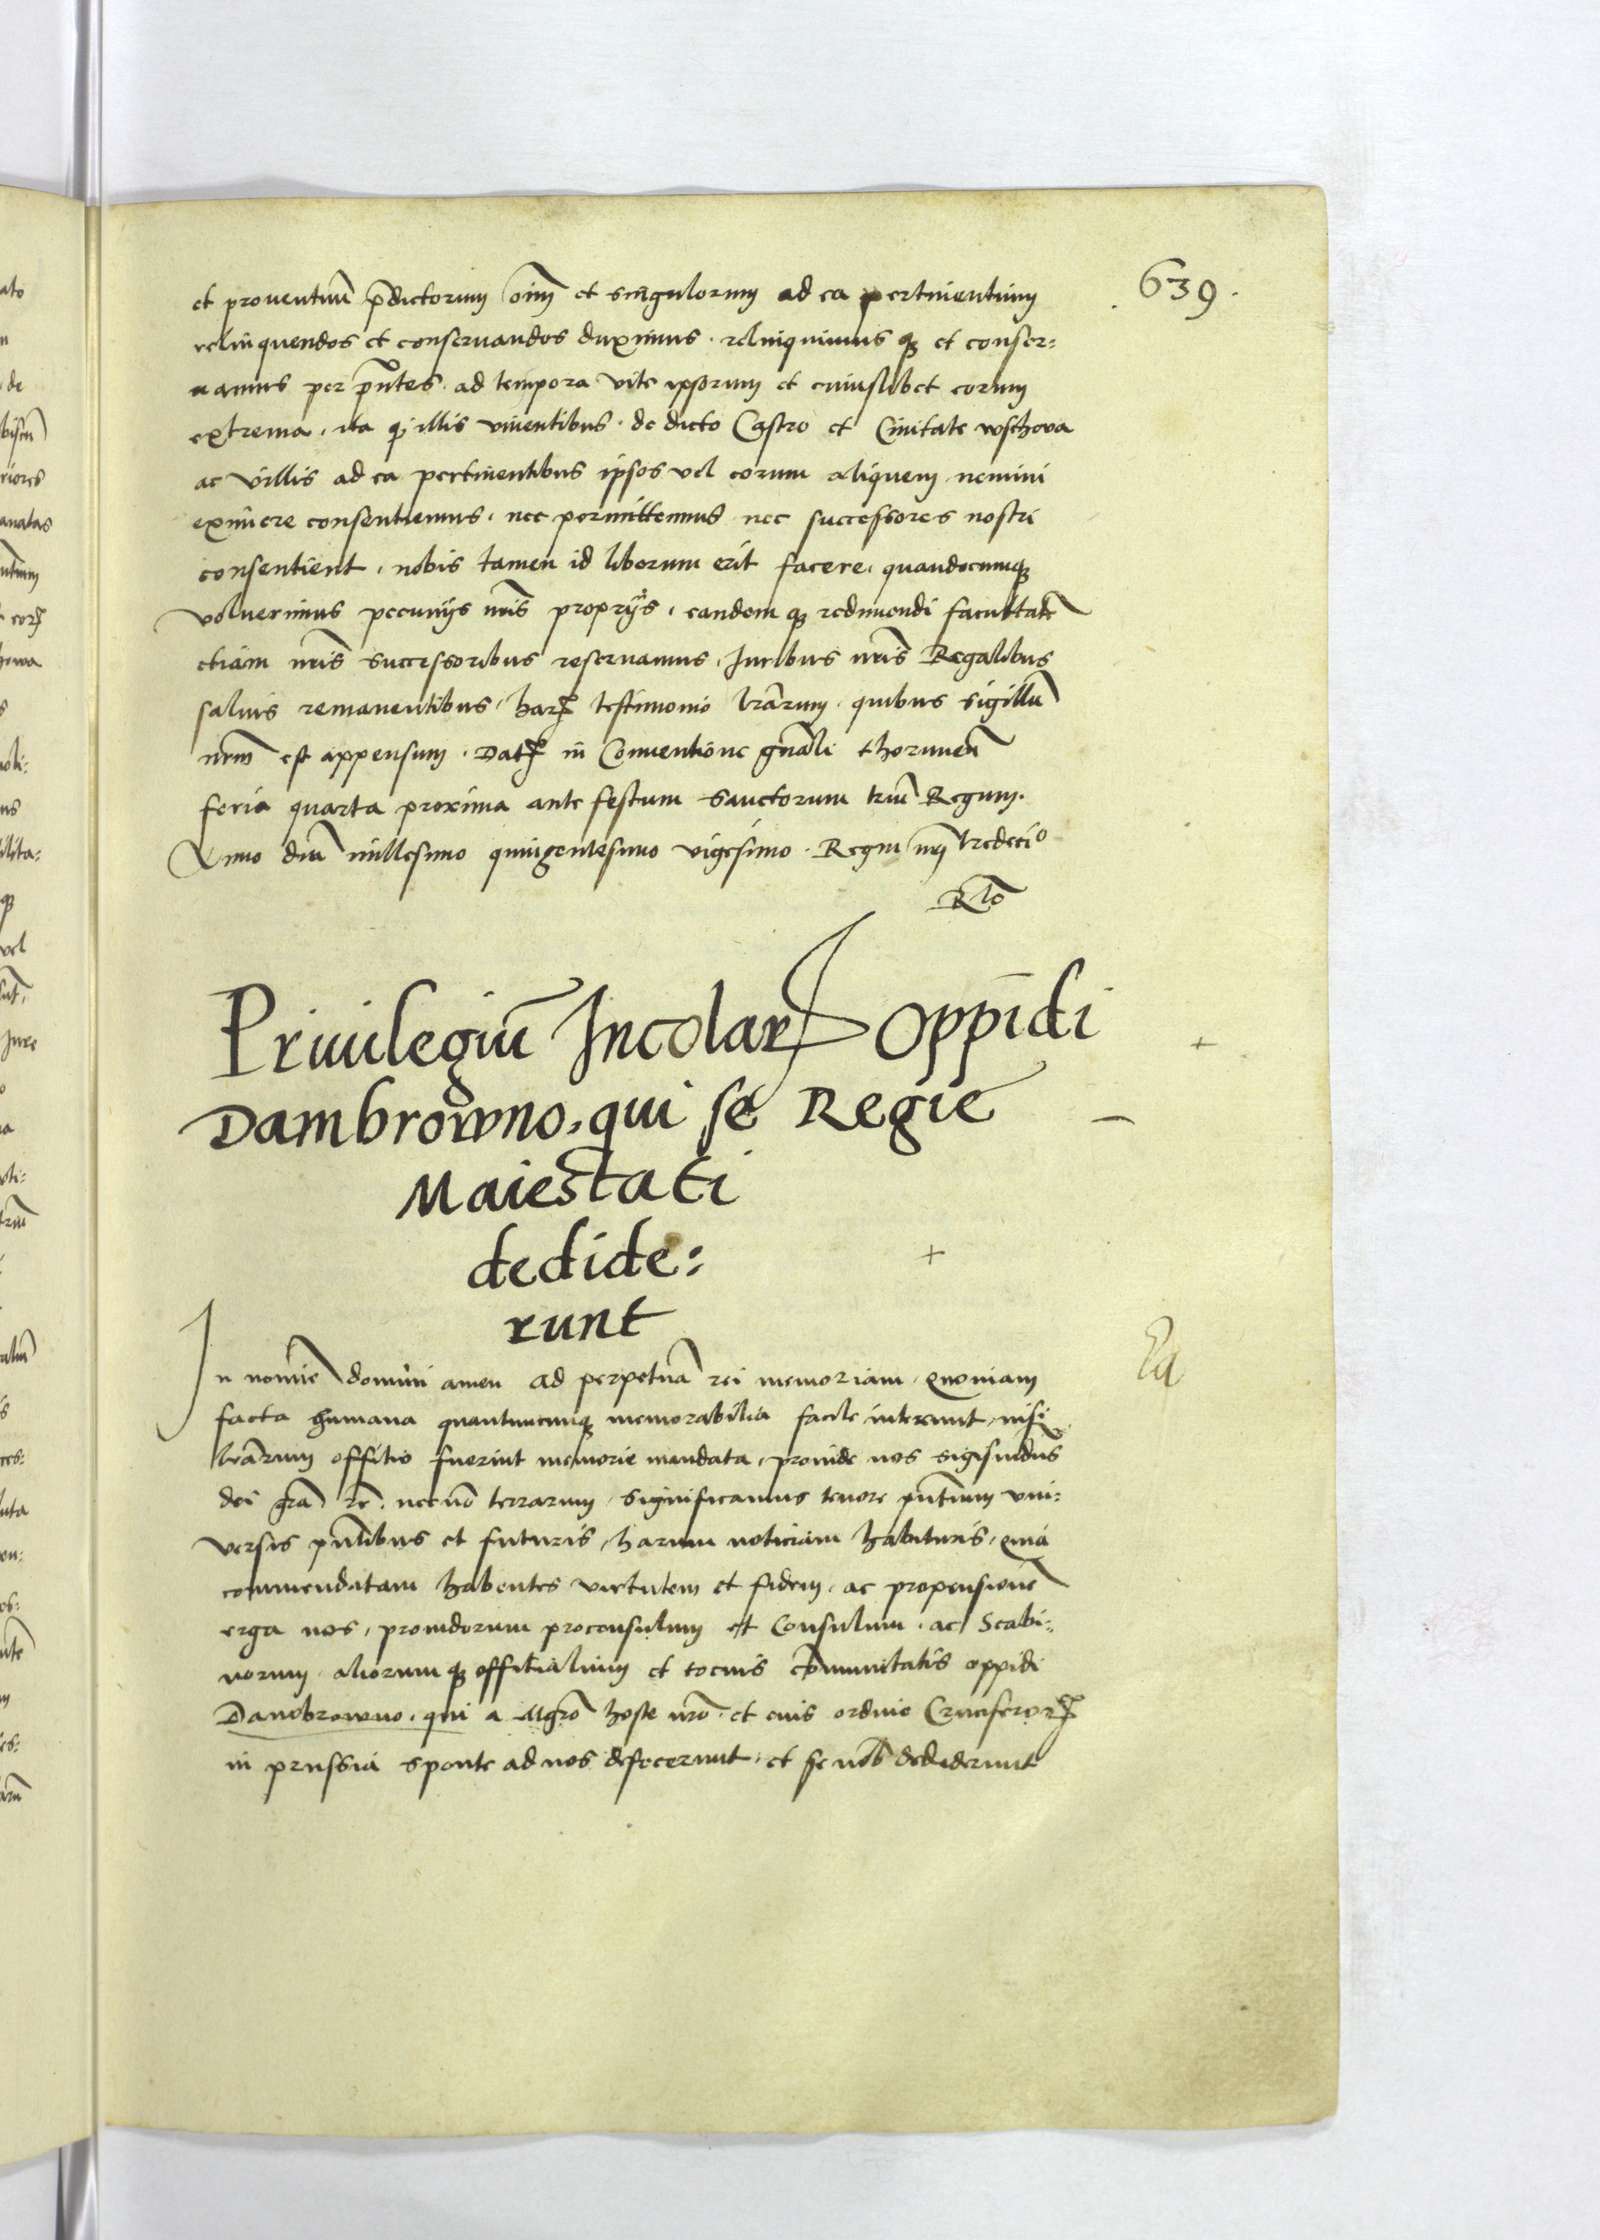 639.
et prouentuū p̄dictorum oīm et singulorum ad ea pertinentium
relinquendos et conseruandos duximus. relinquimus q3 et conser=
uamus per p̄ntes. ad tempora vite ipsorum et cuiuslibet eorum
extrema. ita q illis viuentibus. de dicto Castro et Ciuitate wschova
ac villis ad ea pertinentibus ipsos vel eorum aliquem nemini
eximere consentiemus. nec permittemus nec successores nostri
consentient. nobis tamen id liberum erit facere. quandocumq3
voluerimus pecunijs nr̄is proprijs. eandem q3 redimendi facultatē
etiam nr̄is successoribus reseruamus. Juribus nr̄is Regalibus
saluis remanentibus. harꝝ testimonio lr̄arum. quibus sigillū
nrm̄ est appensum. Datꝝ in Conuentione gn̄ali thorunen̄
feria quarta proxima ante festum Sanctorum triū Regum.
Anno dnī millesimo quingentesimo vigesimo. Regni nr̄i tredeciº
Rlō
Priuilegiū Incolarꝝ Oppidi
Dambrowno. qui se Regie
Maiestati
dedide:
runt
In nomīe domini amen ad perpetuā rei memoriam. quoniam
facta humana quantumcumq3 memorabilia facile intereunt. nisi
lr̄arum offitio fuerint memorie mandata. proinde nos sigismūdus
dei grā rē. necnō terrarum. significamus tenore pn̄tium vni=
versis pn̄tibus et futuris. harum noticiam habituris. quia
commendatam habentes virtutem et fidem. ac propensionē
erga nos. prouidorum proconsulum et Consulum. ac Scabi=
norum. aliorumq3 offitialium et tocius cōmunitatis oppidi
Dambrowno. qui a Mgrō hoste nrō. et eius ordine Cruciferorꝝ
in prussia sponte ad nos defecerunt. et se nob̄ dediderunt